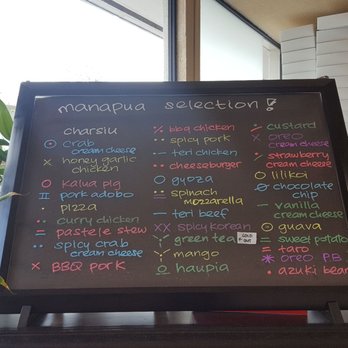 manapua selection!
charsiu
crab
cream cheese
honey garlic
chicken
kalua pig
pork adobo
pizza
curry chicken
pastele stew
spicy crab
cream cheese
BBQ pork
bbq chicken
spicy pork
teri chicken
cheeseburger
gyoza
spinach
mozzarella
teri beef
spicy korean
green tea
mango
haupia
SOLD
OUT
custard
oreo
cream cheese
strawberry
cream cheese
lilikoi
chocolate
chip
vanilla
cream cheese
guava
sweet potato
taro
oreo P.B
azuki bean